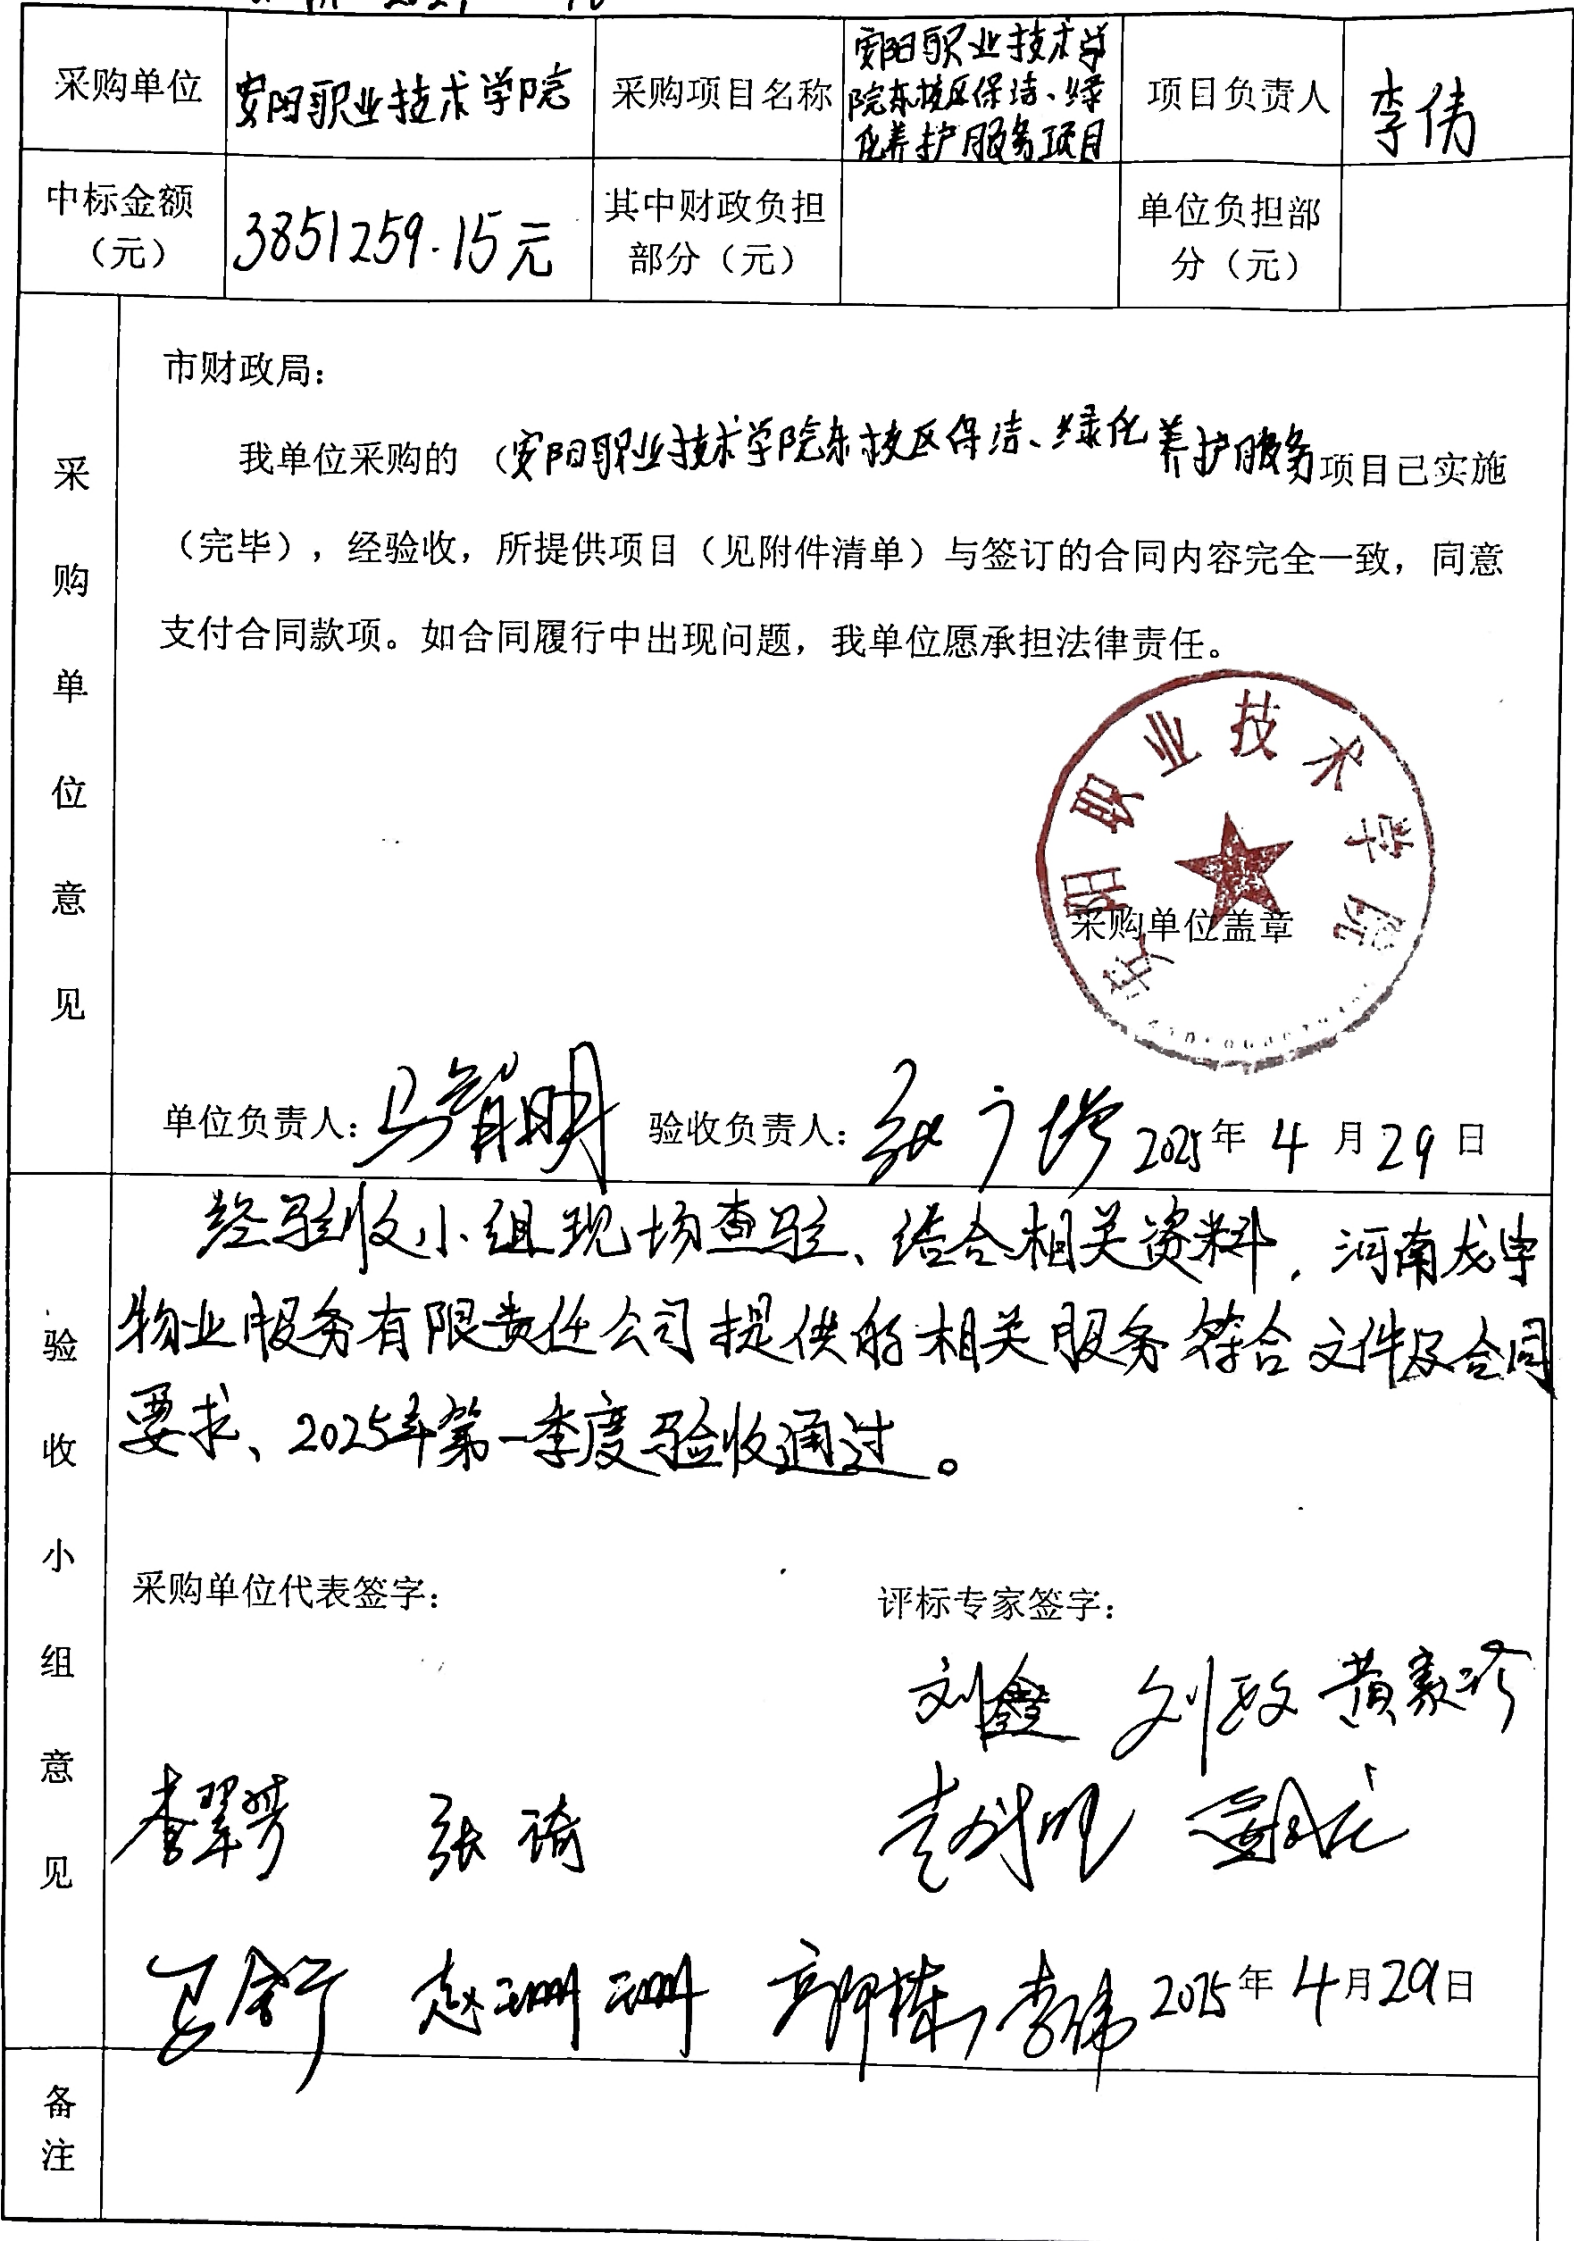 采购单位 安阳职业技术学院 采购项目名称 安阳职业技术学院东校区保洁、绿化养护服务项目 项目负责人 李伟
中标金额（元） 3851259.15元 其中财政负担部分（元） 单位负担部分（元）
采购单位意见
市财政局：
我单位采购的（安阳职业技术学院东校区保洁、绿化养护服务项目已实施
（完毕），经验收，所提供项目（见附件清单）与签订的合同内容完全一致，同意
支付合同款项。如合同履行中出现问题，我单位愿承担法律责任。
安阳职业技术学院
采购单位盖章
单位负责人： 验收负责人： 2025年 4 月 29 日
验收小组意见
经验收小组现场查验、结合相关资料，河南龙宇
物业服务有限责任公司提供的相关服务符合文件及合同
要求、2025年第一季度验收通过。
采购单位代表签字： 评标专家签字：
刘鑫 刘政 黄素珍
李翠芳 张琦
赵珊珊 郭栋 李伟 2025年 4月29日
备注